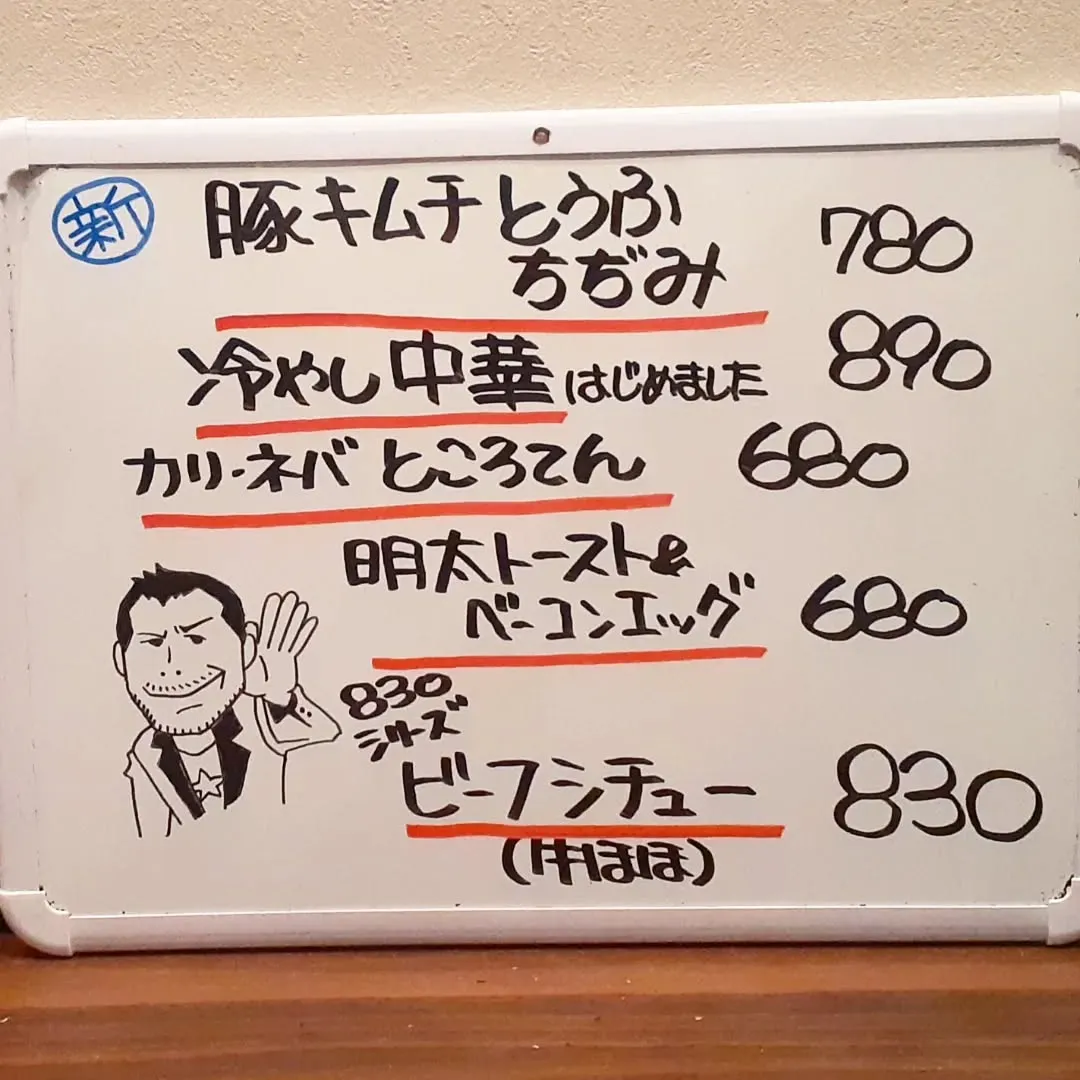 新 豚キムチとうふ
ちぢみ 780
冷やし中華はじめました 890
カリーネバところてん 680
明太トースト&
ベーコンエッグ 680
830
シリーズ
ビーフシチュー 830
(牛ほほ)